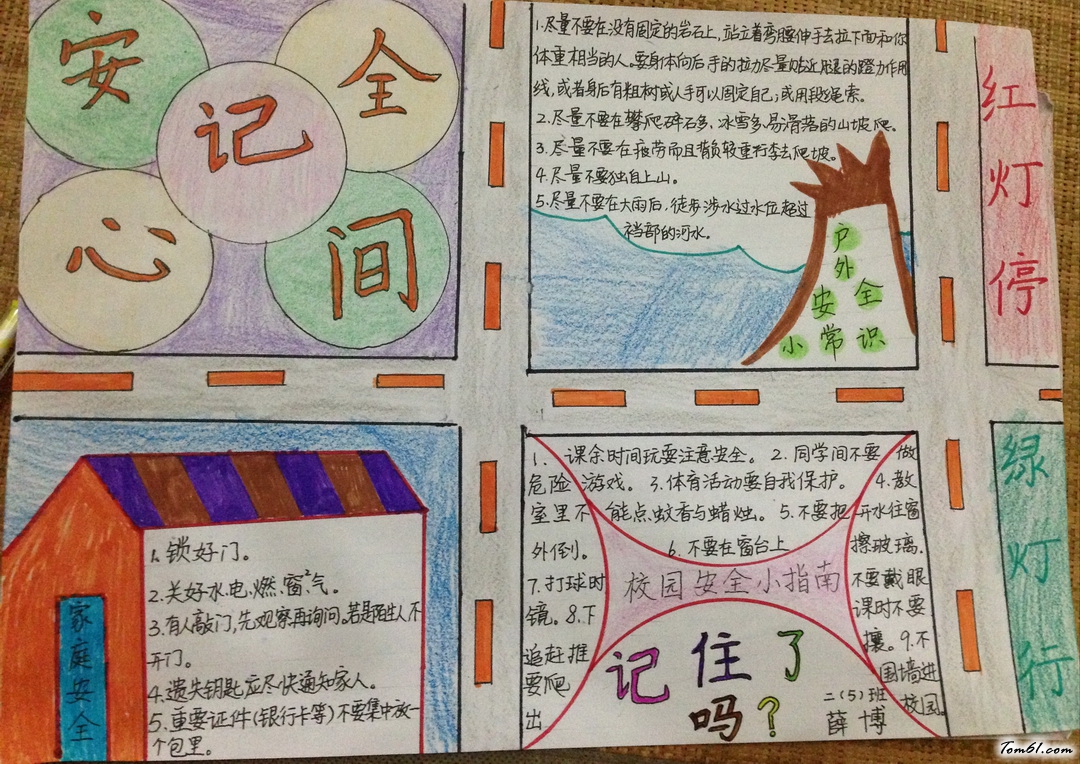 安全
记
心间
1.尽量不要在没有固定的岩石上,站立着弯腰伸手去拉下面和你
体重相当的人。要身体向后手的拉力尽量贴近用腿的蹬力作用
线,或者身后有粗树或人手可以固定自己;或用段绳索。
2.尽量不要在攀爬碎石多、冰雪多易滑落的山坡爬。
3.尽量不要在疲劳而且背负较重行李去爬坡。
4.尽量不要独自上山。
5.尽量不要在大雨后,徒步涉水过水位超过
裆部的河水。
户
外
安全
小常识
红
灯
停
绿
灯
行
家
庭
安
全
1.锁好门。
2.关好水、电、燃、窗气。
3.有人敲门,先观察再询问。若是陌生人不
开门。
4.遗失钥匙应尽快通知家人。
5.重要证件(银行卡等)不要集中放一
个包里。
1. 课余时间玩耍注意安全。2.同学间不要做
危险游戏。3.体育活动要自我保护。4.教
室里不能点蚊香与蜡烛。5.不要把开水往窗
外倒。6.不要在窗台上擦玻璃.
7.打球时不要戴眼
镜。8.下课时不要
追赶推攘。9.不
要爬围墙进
出校园。
校园安全小指南
记住了
吗?
二(5)班
薛博
Tom61.com